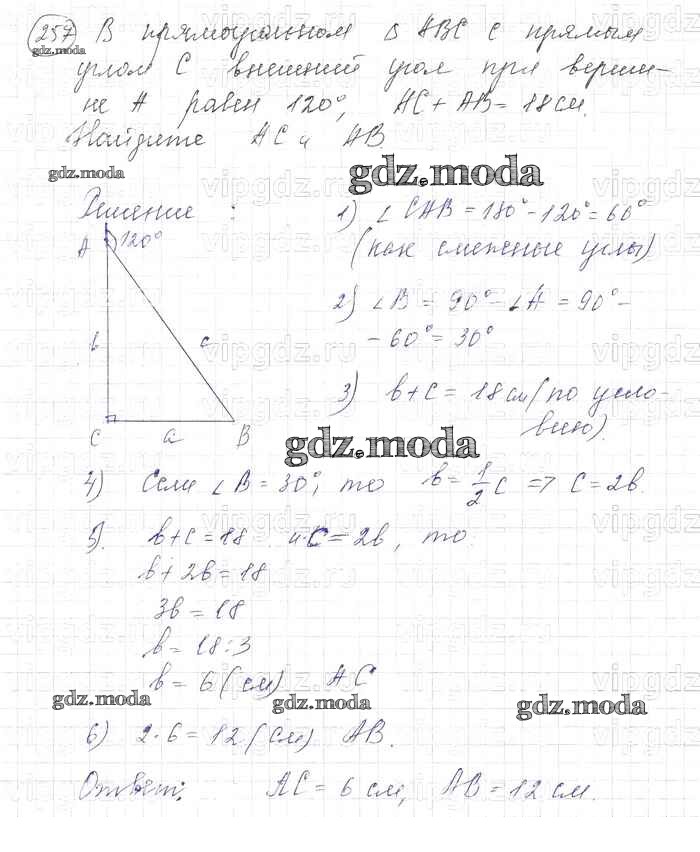 257 В прямоугольном Δ ABC с прямым
gdz.moda
углом C внешний угол при верши-
не A равен 120°, AC + AB = 18 см.
Найдите AC и AB.
gdz.moda
gdz.moda
Решение :
1) ∠CAB = 180° - 120° = 60°
(как смежные углы)
A 120°
2) ∠B = 90° - ∠A = 90° -
- 60° = 30°
b c
3) b + c = 18 см (по усло-
вию).
C a B
gdz.moda
4) Если ∠B = 30°, то b = 1/2 c => c = 2b.
5). b + c = 18 и c = 2b, то
b + 2b = 18
3b = 18
b = 18 : 3
b = 6 (см) AC
gdz.moda gdz.moda gdz.moda
6) 2 · 6 = 12 (см) AB.
Ответ: AC = 6 см, AB = 12 см.